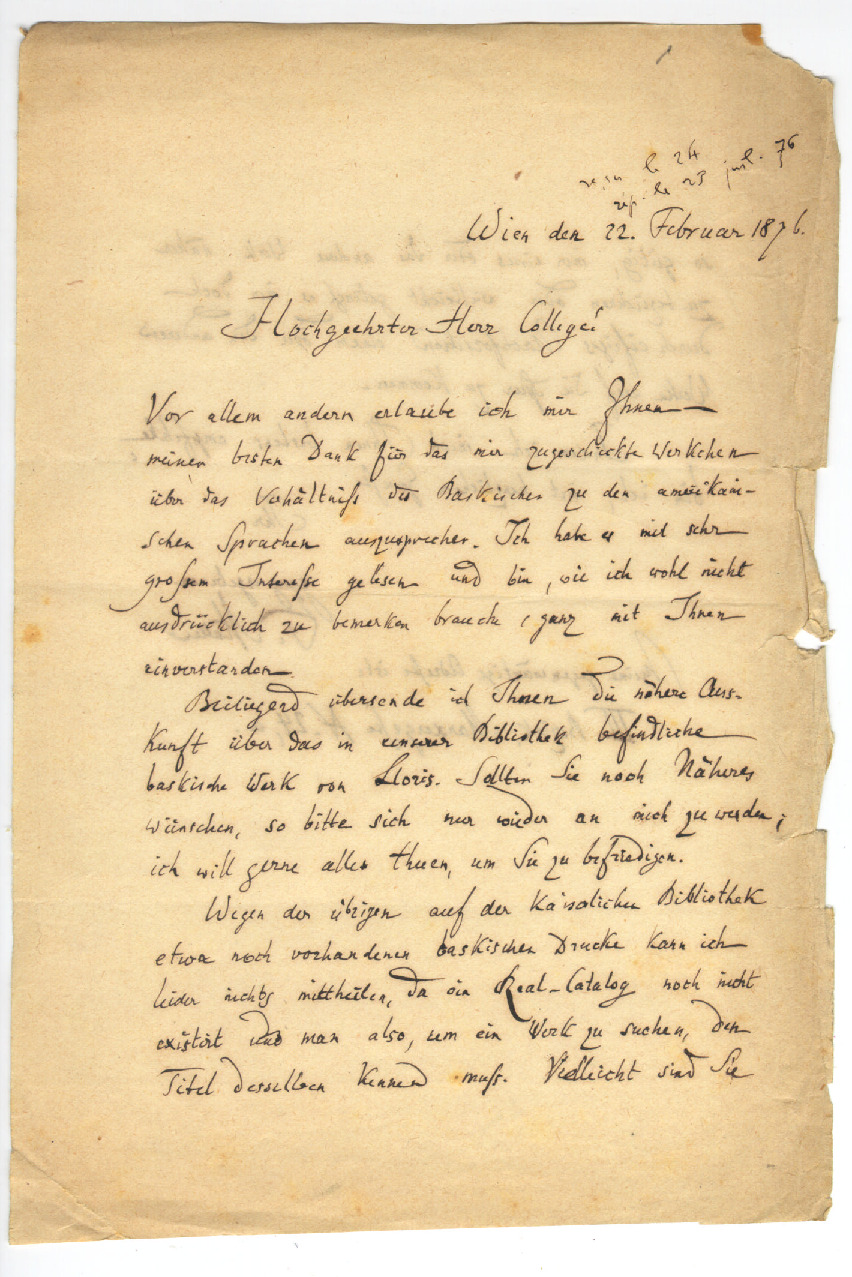 le 24
le 23 juil. 76
Wien den 22. Februar 1876.
Hochgeehrter Herr College!
Vor allem andern erlaube ich mir Ihnen
meinen besten Dank für das mir zugeschickte Werkchen
über das Verhältniß des Baskischen zu den amerikani-
schen Sprachen auszusprechen. Ich habe es mit sehr
großem Interesse gelesen und bin, wie ich wohl nicht
ausdrücklich zu bemerken brauche, ganz mit Ihnen
einverstanden.
Beiliegend übersende ich Ihnen die nähere Aus-
kunft über das in unserer Bibliothek befindliche
baskische Werk von Lloris. Sollten Sie noch Näheres
wünschen, so bitte sich nur wieder an mich zu wenden;
ich will gerne alles thuen, um Sie zu befriedigen.
Wegen der übrigen auf der Kaiserlichen Bibliothek
etwa noch vorhandenen baskischen Drucke kann ich
leider nichts mittheilen, da ein Real-Catalog noch nicht
existirt und man also, um ein Werk zu suchen, den
Titel desselben kennen muß. Vielleicht sind Sie